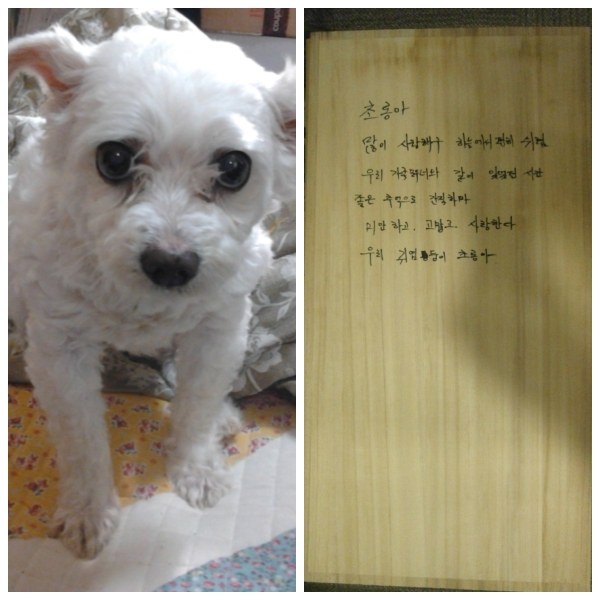 초롱아
많이 사랑해구 하늘에서 편히 쉬렴
우리 가족 하너와 같이 있었던 시간
좋은 추억으로 간직하마
미안 하고, 고맙고, 사랑한다
우리 귀염둥이 초롱아